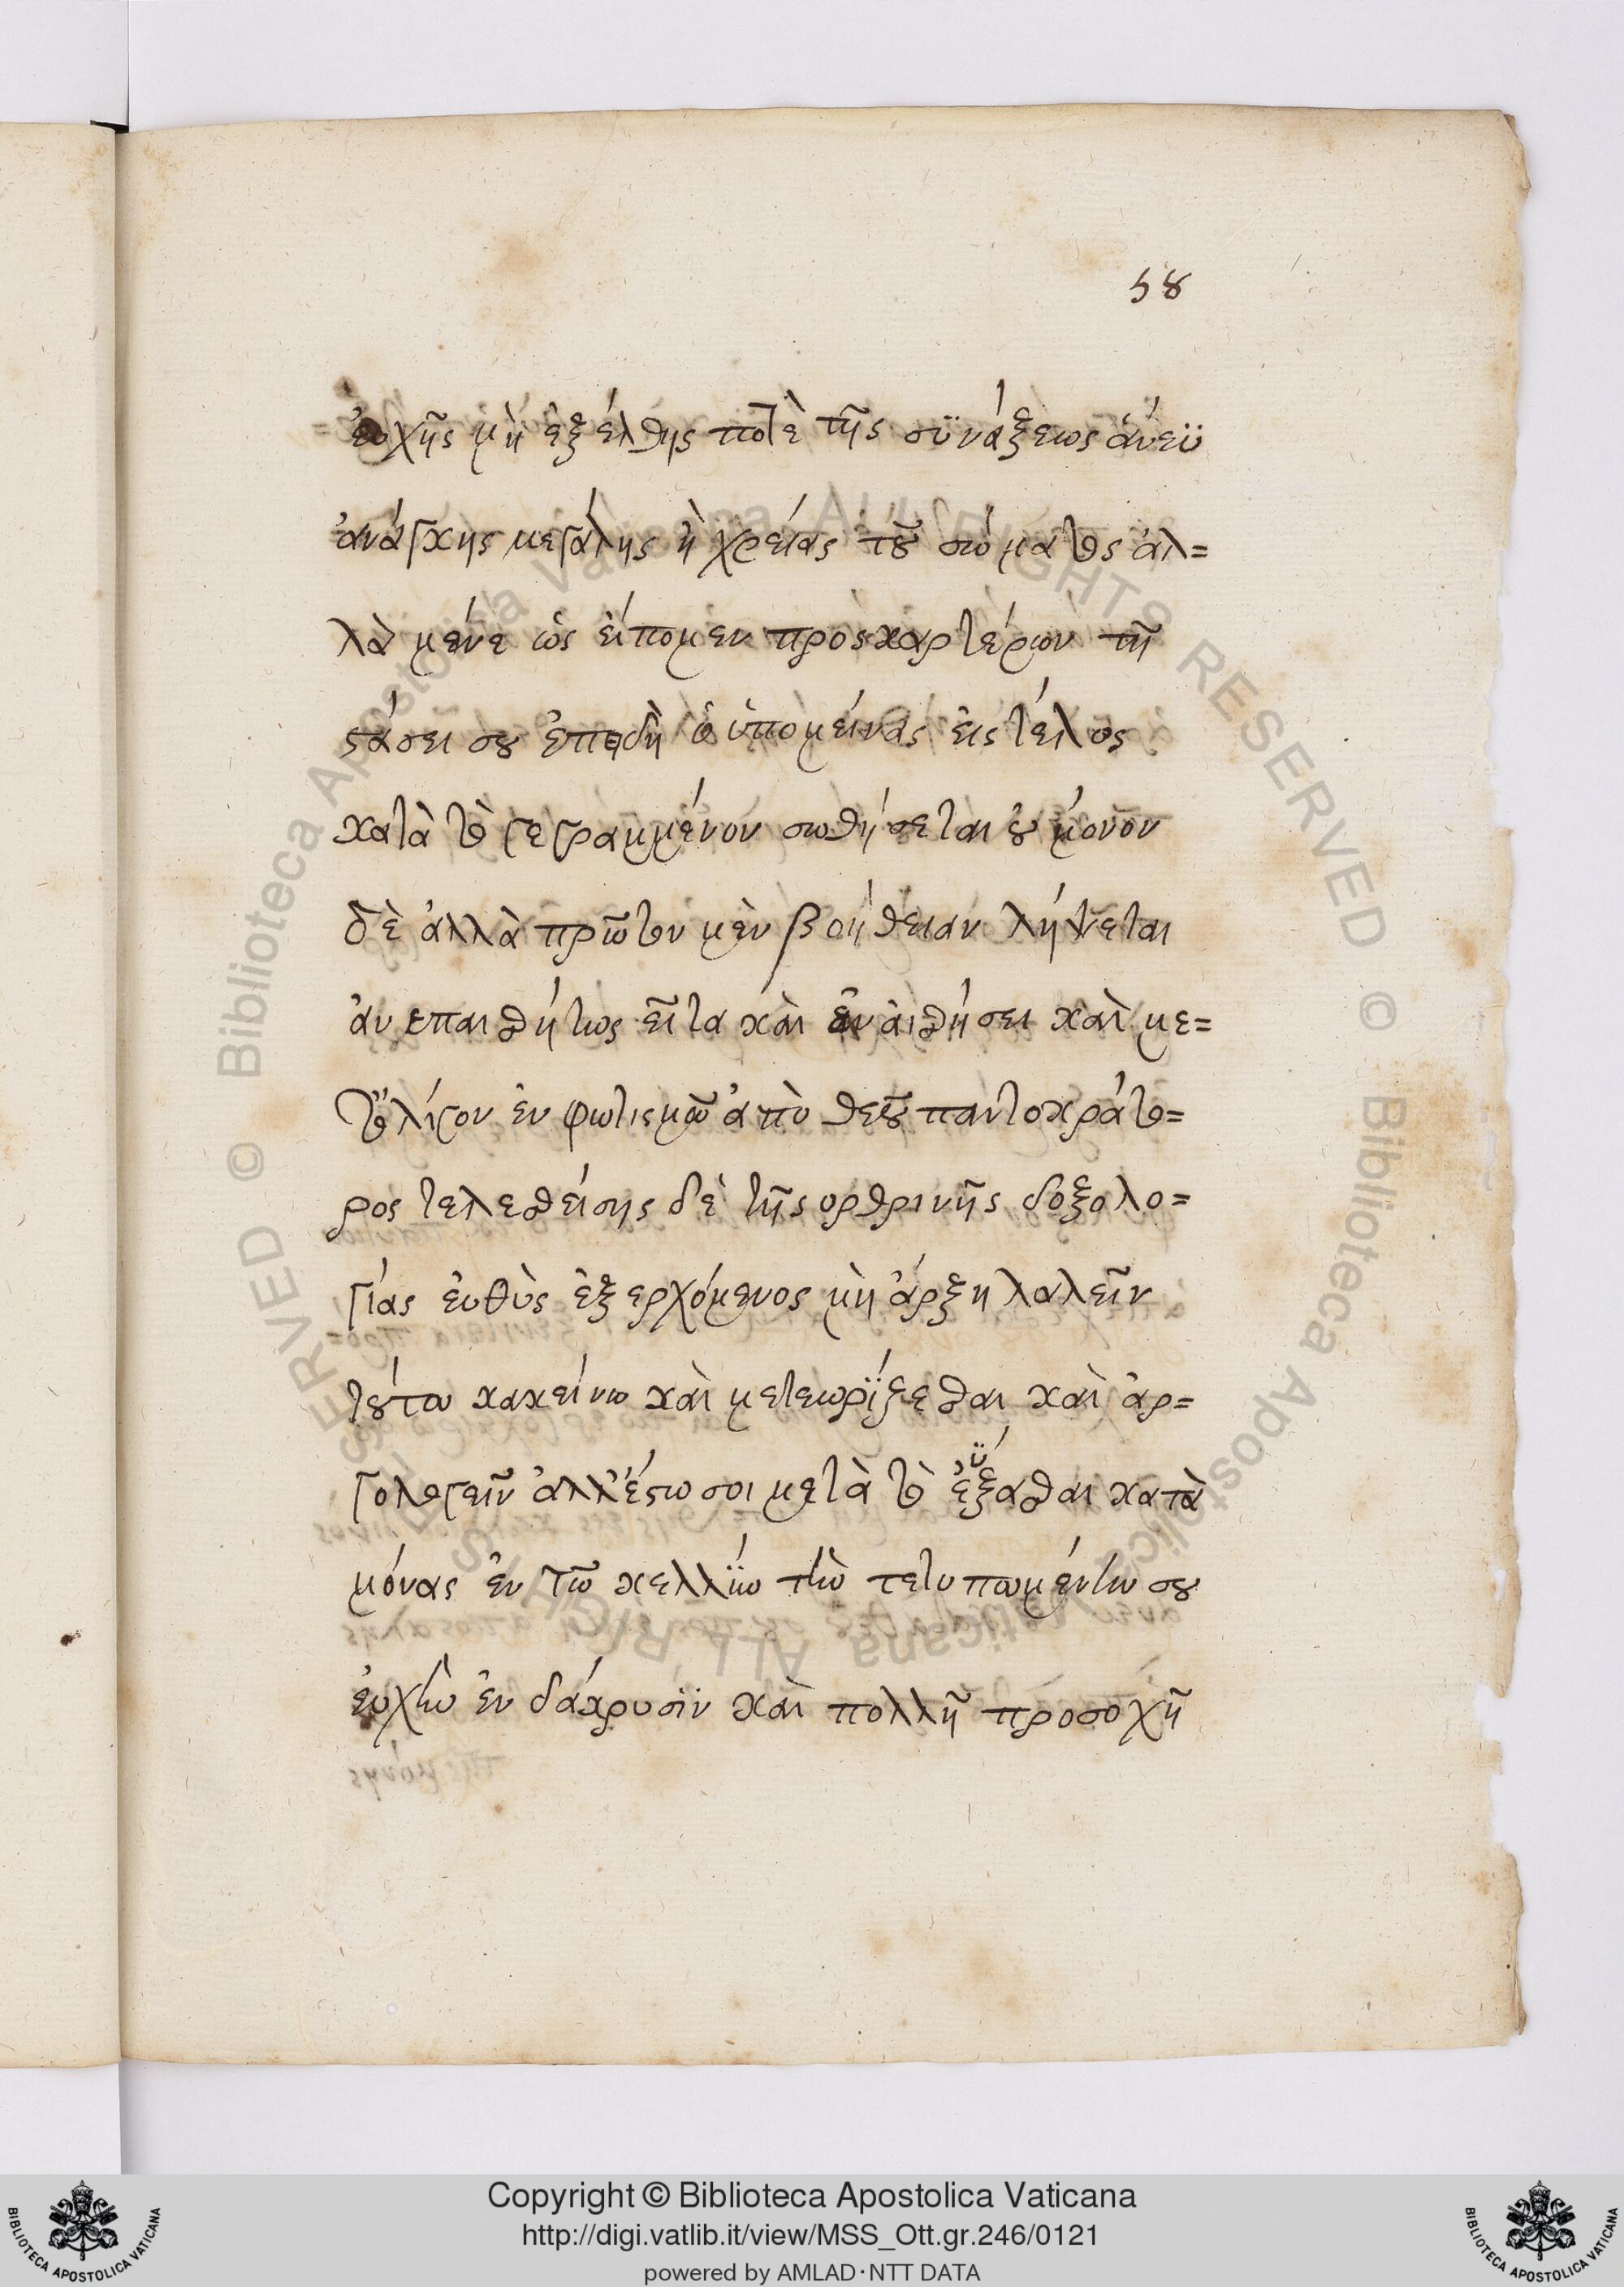 58
ἐυχῆς μὴ ἐξέλθης ποτὲ τῆς σϋνάξεως άνεϋ
ἀνάγκης μεγάλης ἢ χρείας τοῦ σώματος ἀλ=
λὰ μένε ὡς ἐίπομεν προσκαρτέρων τῆ
στάσει σου ἐπειδὴ ὁ ὑπομείνας ἐις τέλος
κατὰ τὸ γεγραμμένον σωθήσεται οὐ μόνον
δὲ ἀλλὰ πρῶτον μὲν βοήθειαν λήψεται
ἀνεπαισθήτως εἶτα καὶ ἐν ἀισθήσει καὶ με=
τ' ὀλίγον ἐν φωτισμῶ ἀπὸ θεοῦ παντοκράτο=
ρος τελεσθείσης δὲ τῆς ορθρινῆς δοξολο=
γίας ἐυθὺς ἐξερχόμενος μὴ ἄρξη λαλεῖν
τούτω κακείνω καὶ μετεωρΐζεσθαι καὶ ἀρ=
γολογεῖν ἀλλ' ἔστω σοι μετὰ τὸ ἐύξασθαι κατὰ
μόνας ἐν τῶ κελλΐω τὴν τετυπωμένην σου
ἐυχὴν ἐν δάκρυσϊν καὶ πολλῆ προσοχῆ
τῆς μόνης
Copyright © Biblioteca Apostolica Vaticana
http://digi.vatlib.it/view/MSS_Ott.gr.246/0121
powered by AMLAD·NTT DATA
BIBLIOTECA APOSTOLICA VATICANA
BIBLIOTECA APOSTOLICA VATICANA
© Biblioteca Apostolica Vaticana ALL RIGHTS RESERVED
© Biblioteca Apostolica Vaticana ALL RIGHTS RESERVED